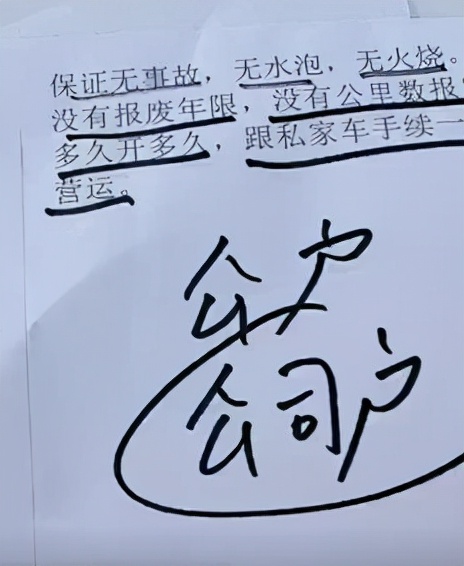 保证无事故，无水泡，无火烧。
没有报废年限，没有公里数报
多久开多久，跟私家车手续一
营运。
公户
公司户